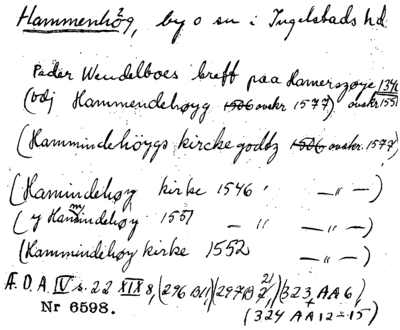 Hammenhög, by o sn i Ingelstads hd
Peder Wendelboes breff paa Hamerszøje 1346
(vdj Hammendehøyg 1506 avskr 1577) avskr 1551
(Hammindehöygs kircke godtz 1506 avskr. 1577)
(Hamindehøy kirke 1546 — " —)
(y Hamindehøy 1551 — " — — " —)
(Hammindehøy kirke 1552 — " —)
Æ. D. A. IV s. 22 XIX 8, (296 B 11, (297 B 2, 21) (323 AA 6,
Nr 6598. (324 AA 12-15)